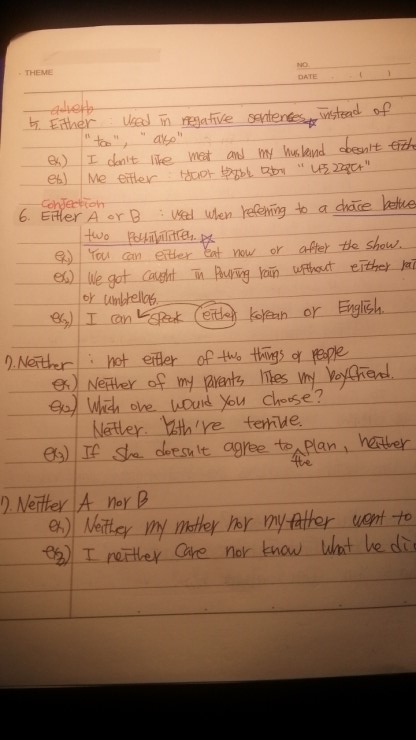 THEME
NO.
DATE . ( )
adverb
5. Either : used in negative sentences instead of
"too", "also"
ex1) I don't like meat and my husband doesn't either
ex2) Me either :
conjection
6. Either A or B : used when referring to a choice between
two possibilities.
ex1) You can either eat now or after the show.
ex2) We got caught in pouring rain without either
or umbrellas.
ex3) I can speak either Korean or English.
7. Neither : not either of two things or people
ex1) Neither of my parents likes my boyfriend.
ex2) Which one would you choose?
Neither. Both're terrible.
ex3) If she doesn't agree to the plan, neither
7. Neither A nor B
ex1) Neither my mother nor my father went to
ex2) I neither care nor know what he